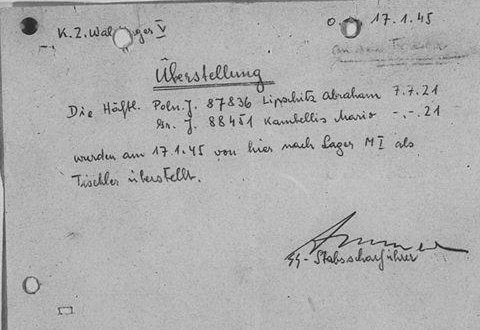 K. Z. Waldlager V
O. 17.1.45
Überstellung
Die Häftl. Poln. J. 87836 Lipschitz Abraham 7.7.21
Gr. J. 88451 Kambellis Mario -.-.21
wurden am 17.1.45 von hier nach Lager M I als
Tischler überstellt.
SS-Stabsscharführer